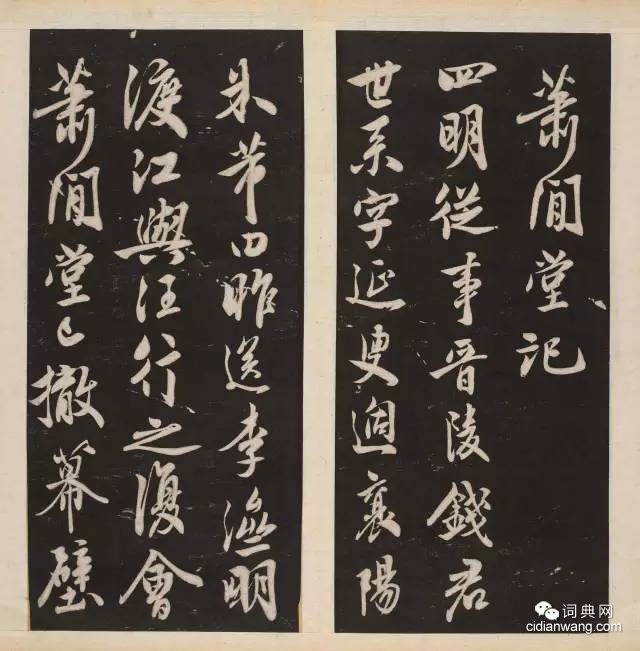 蕭閒堂記
四明從事晉陵錢君
世字延叟過襄陽
米芾曰昨送李明
渡江與汪行之復會
蕭閒堂已撤幕壁
词典网
cidianwang.com